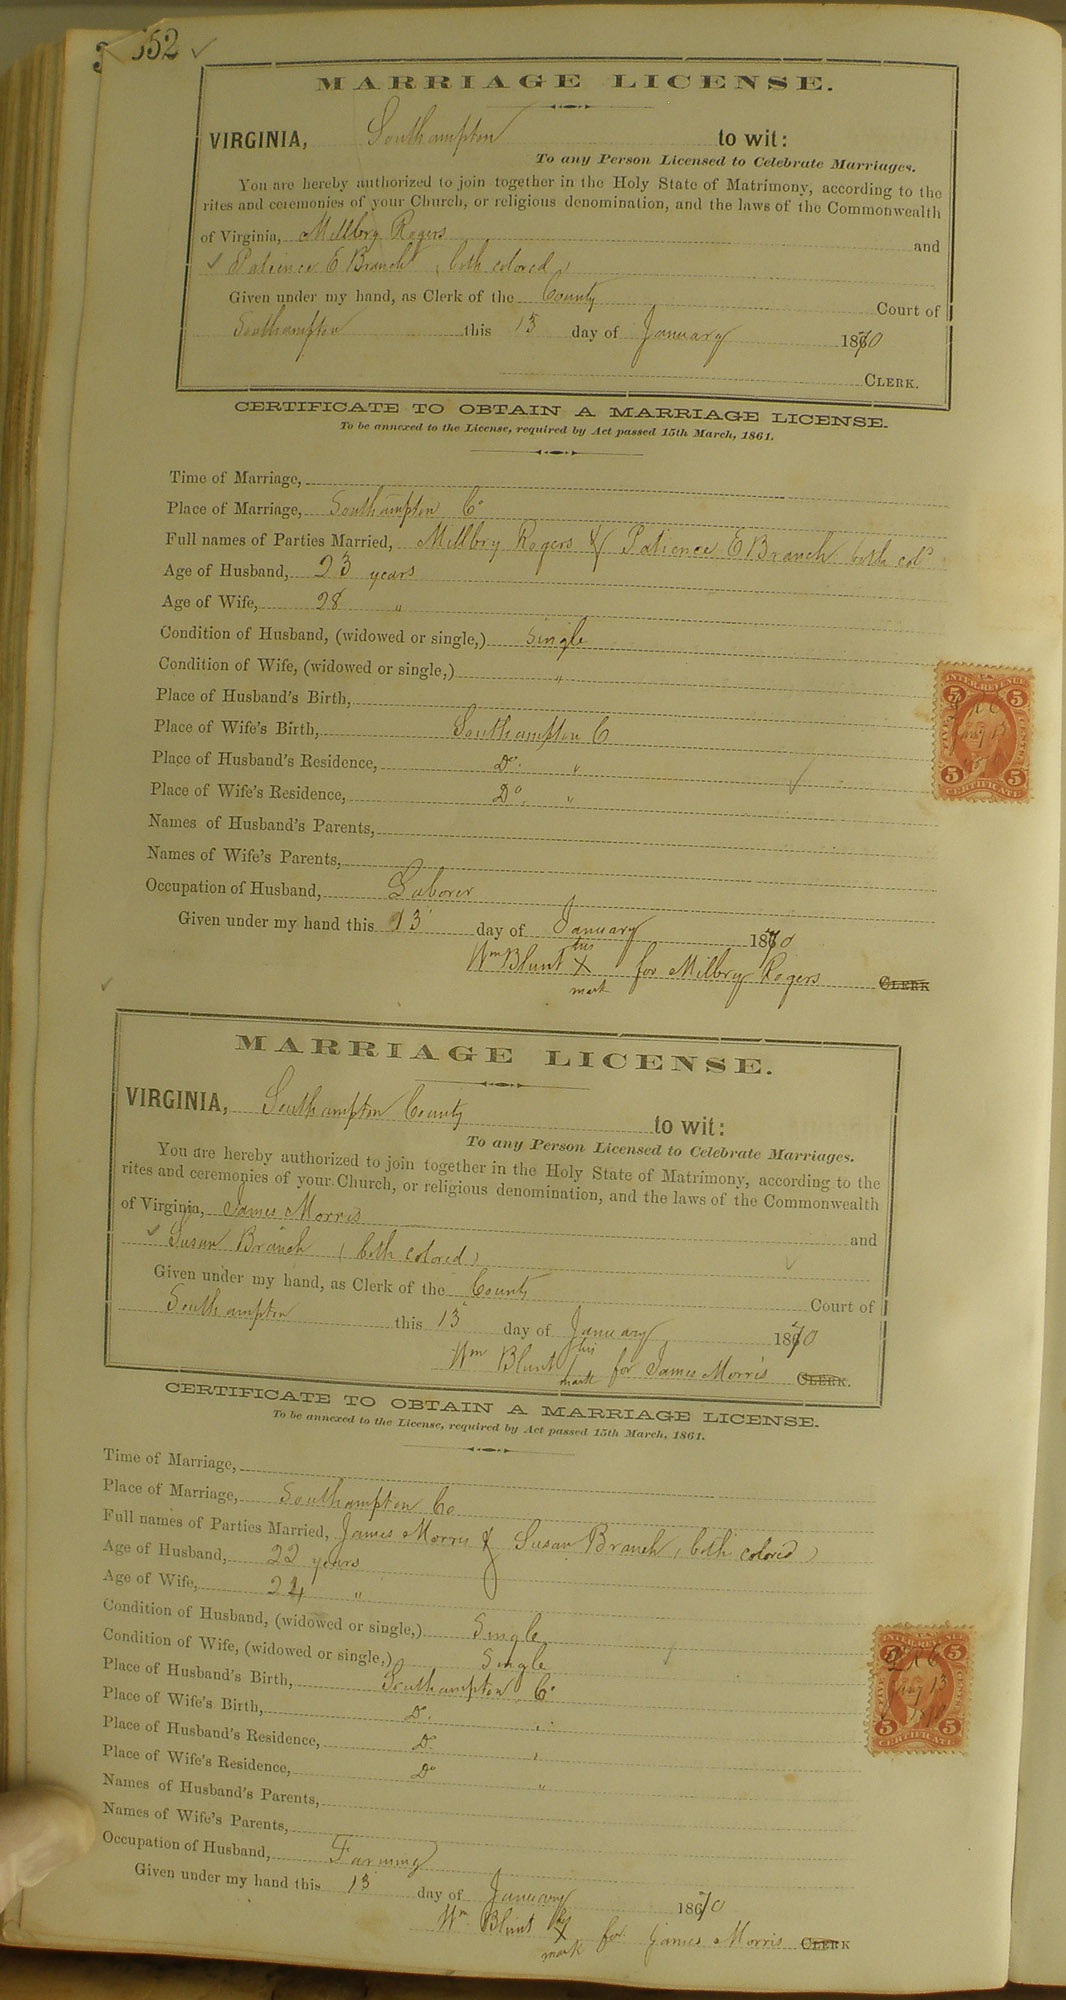 352 ✓
MARRIAGE LICENSE.
VIRGINIA, Southampton to wit:
To any Person Licensed to Celebrate Marriages.
You are hereby authorized to join together in the Holy State of Matrimony, according to the
rites and ceremonies of your Church, or religious denomination, and the laws of the Commonwealth
of Virginia, Millbry Rogers and
✓ Patience E Branch (both colored)
Given under my hand, as Clerk of the County Court of
Southampton this 13 day of January 1870
CLERK.
CERTIFICATE TO OBTAIN A MARRIAGE LICENSE.
To be annexed to the License, required by Act passed 15th March, 1861.
Time of Marriage,
Place of Marriage, Southampton Co
Full names of Parties Married, Millbry Rogers & Patience E Branch both cold
Age of Husband, 23 years
Age of Wife, 28 "
Condition of Husband, (widowed or single,) Single
Condition of Wife, (widowed or single,) "
Place of Husband's Birth,
Place of Wife's Birth, Southampton C
Place of Husband's Residence, Do. "
Place of Wife's Residence, Do. "
Names of Husband's Parents,
Names of Wife's Parents,
Occupation of Husband, Laborer
Given under my hand this 13 day of January 1870
Wm Blunt his X mark for Millbry Rogers CLERK
INTER. REVENUE
5 5
FIVE CENTS
Jany 13
5 5
CERTIFICATE
MARRIAGE LICENSE.
VIRGINIA, Southampton County to wit:
To any Person Licensed to Celebrate Marriages.
You are hereby authorized to join together in the Holy State of Matrimony, according to the
rites and ceremonies of your Church, or religious denomination, and the laws of the Commonwealth
of Virginia, James Morris and
✓ Susan Branch (both colored)
Given under my hand, as Clerk of the County Court of
Southampton this 13 day of January 1870
Wm Blunt his mark for James Morris CLERK.
CERTIFICATE TO OBTAIN A MARRIAGE LICENSE.
To be annexed to the License, required by Act passed 15th March, 1861.
Time of Marriage,
Place of Marriage, Southampton Co
Full names of Parties Married, James Morris & Susan Branch (both colored)
Age of Husband, 22 years
Age of Wife, 24 "
Condition of Husband, (widowed or single,) Single
Condition of Wife, (widowed or single,) Single
Place of Husband's Birth, Southampton Co
Place of Wife's Birth, Do. "
Place of Husband's Residence, Do "
Place of Wife's Residence, Do "
Names of Husband's Parents,
Names of Wife's Parents,
Occupation of Husband, Farming
Given under my hand this 13 day of January 1870
Wm Blunt his X mark for James Morris CLERK
INTER. REVENUE
5 5
FIVE CENTS
Jany 13
1870
5 5
CERTIFICATE